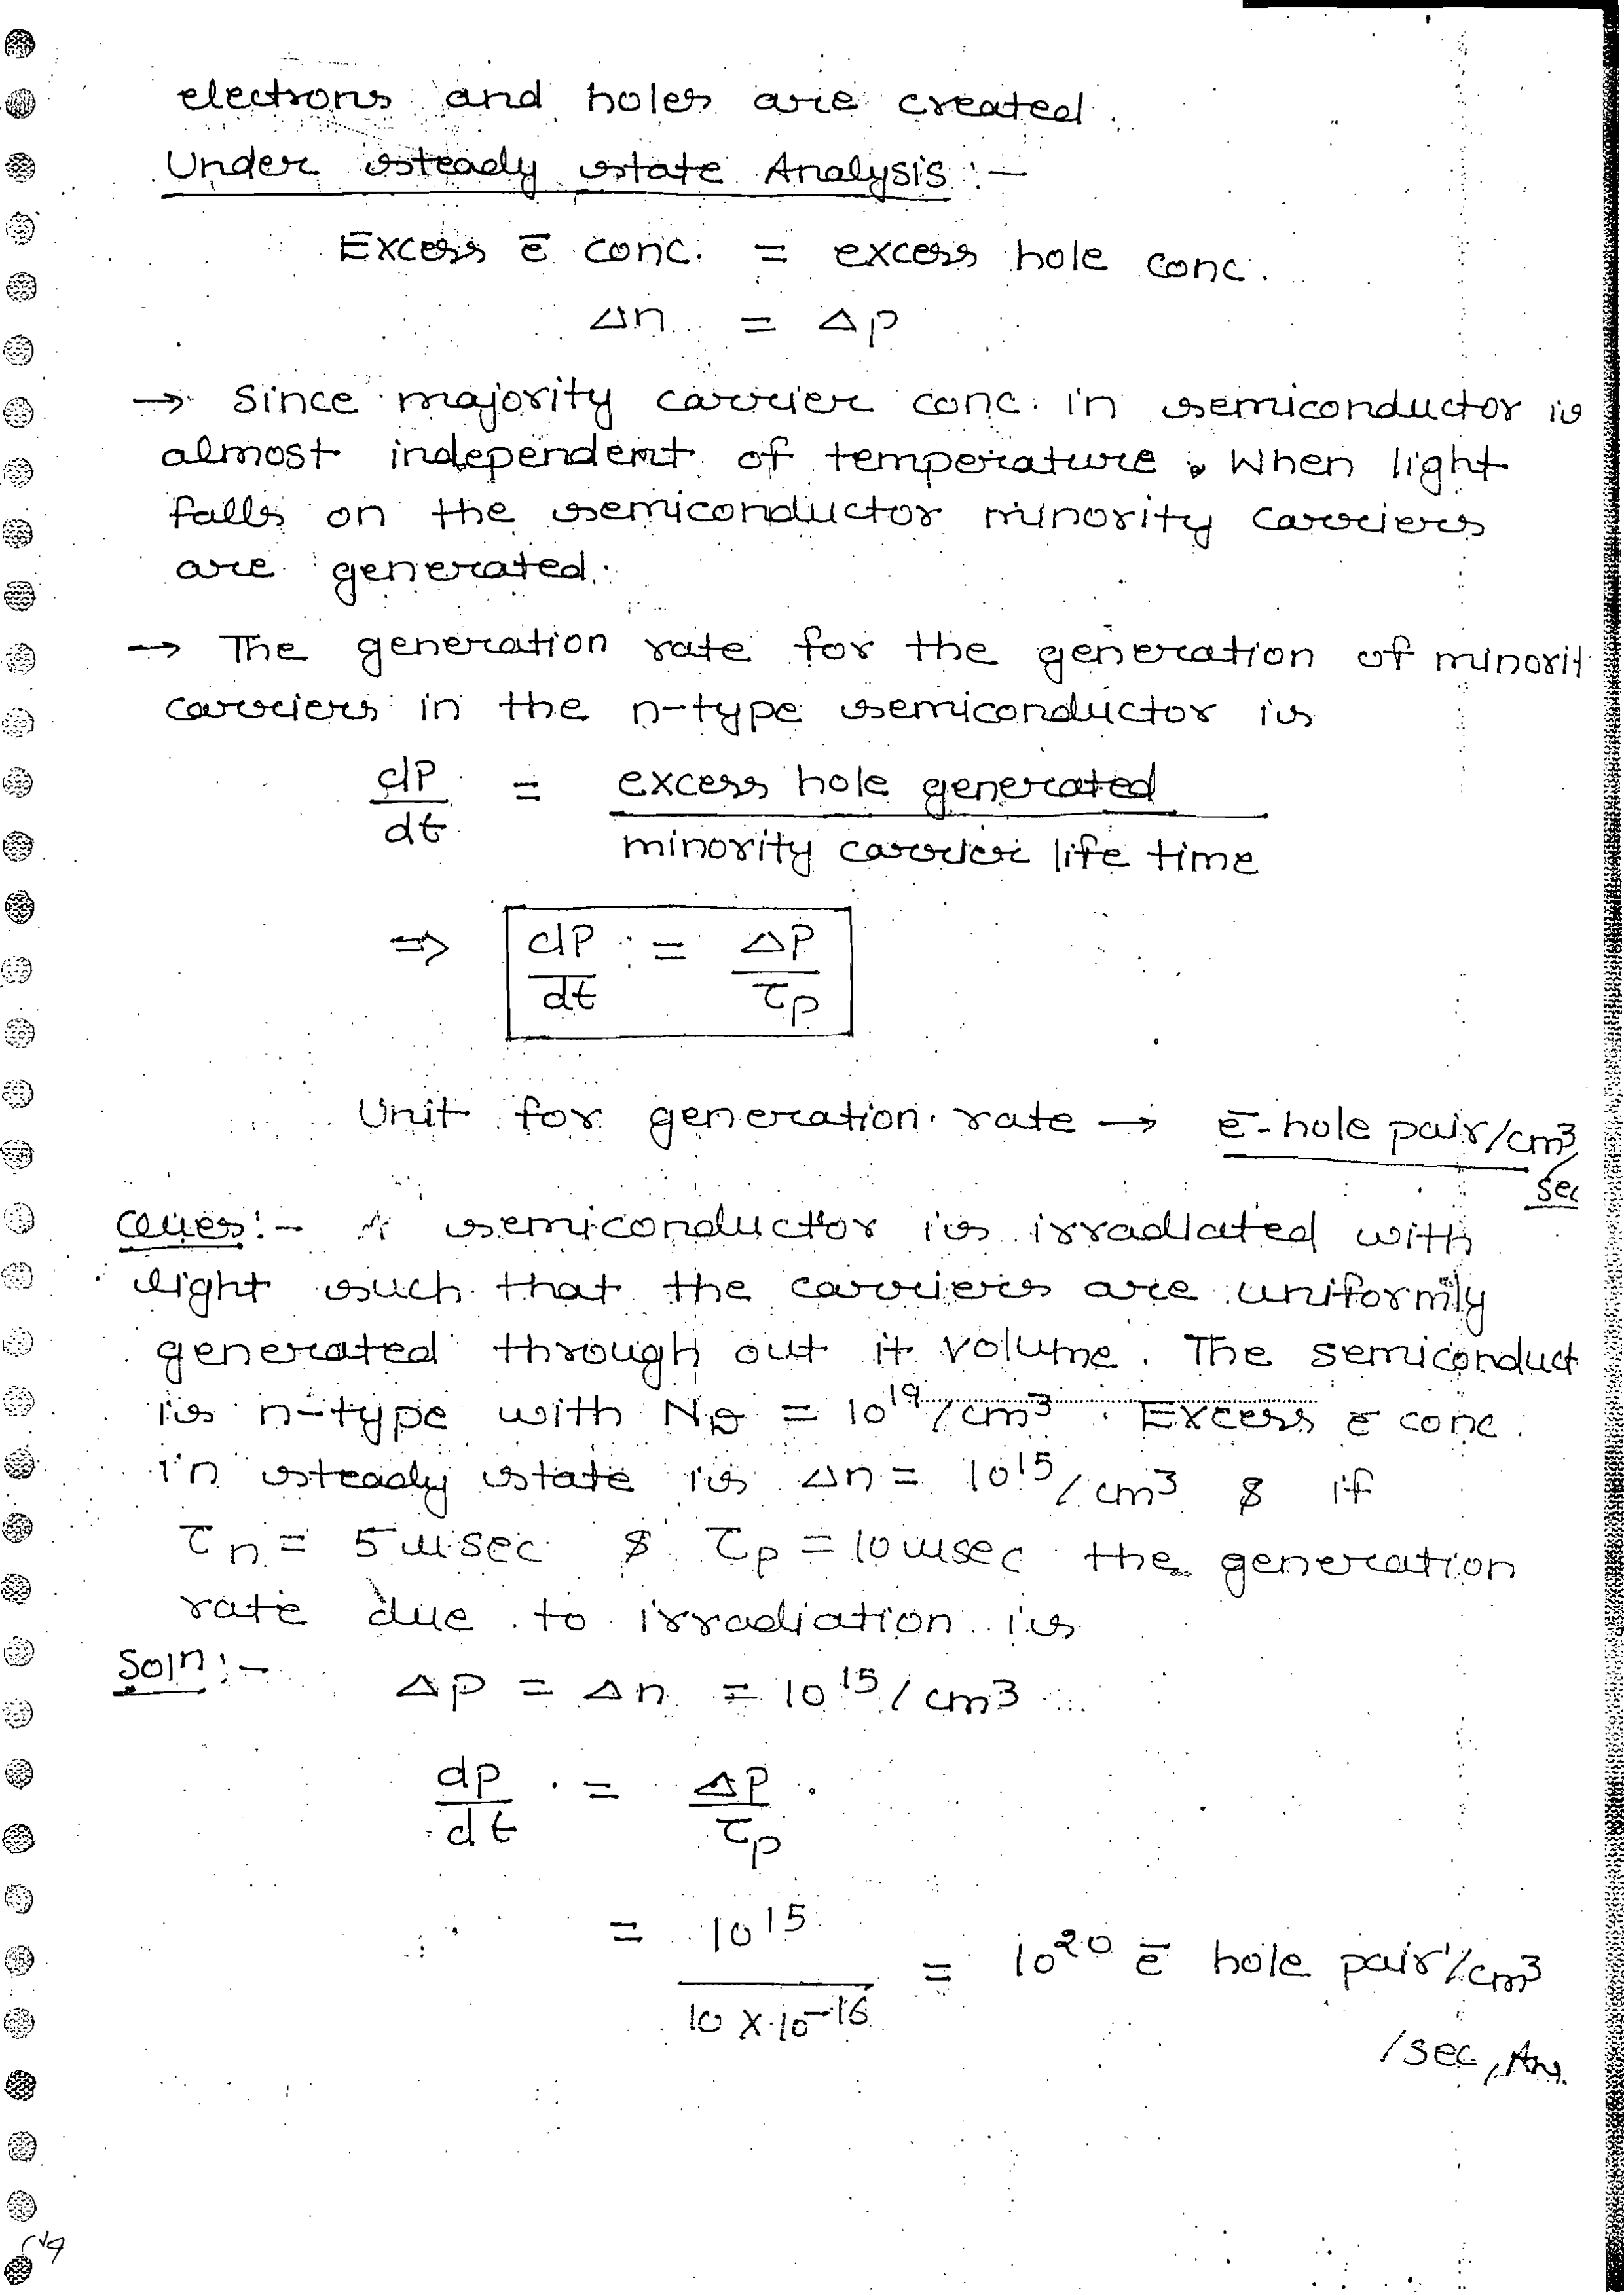 electrons and holes are created.
Under steady state Analysis :-
Excess ē conc. = excess hole conc.
Δn = Δp
→ Since majority carrier conc. in semiconductor is
almost independent of temperature. When light
falls on the semiconductor minority carriers
are generated.
→ The generation rate for the generation of minorit
carriers in the n-type semiconductor is
dP/dt = excess hole generated / minority carrier life time
⇒ dP/dt = ΔP/τp
Unit for generation rate → ē-hole pair/cm³/sec
Ques:- A semiconductor is irradiated with
light such that the carriers are uniformly
generated through out it volume. The semiconduct
is n-type with ND = 10¹⁹/cm³. Excess ē conc.
in steady state is Δn = 10¹⁵/cm³ & if
τn = 5 μsec & τp = 10 μsec the generation
rate due to irradiation is
Soln:- Δp = Δn = 10¹⁵/cm³
dp/dt = ΔP/τp
= 10¹⁵ / 10 × 10⁻¹⁶ = 10²⁰ ē hole pair/cm³
/sec, Ans.